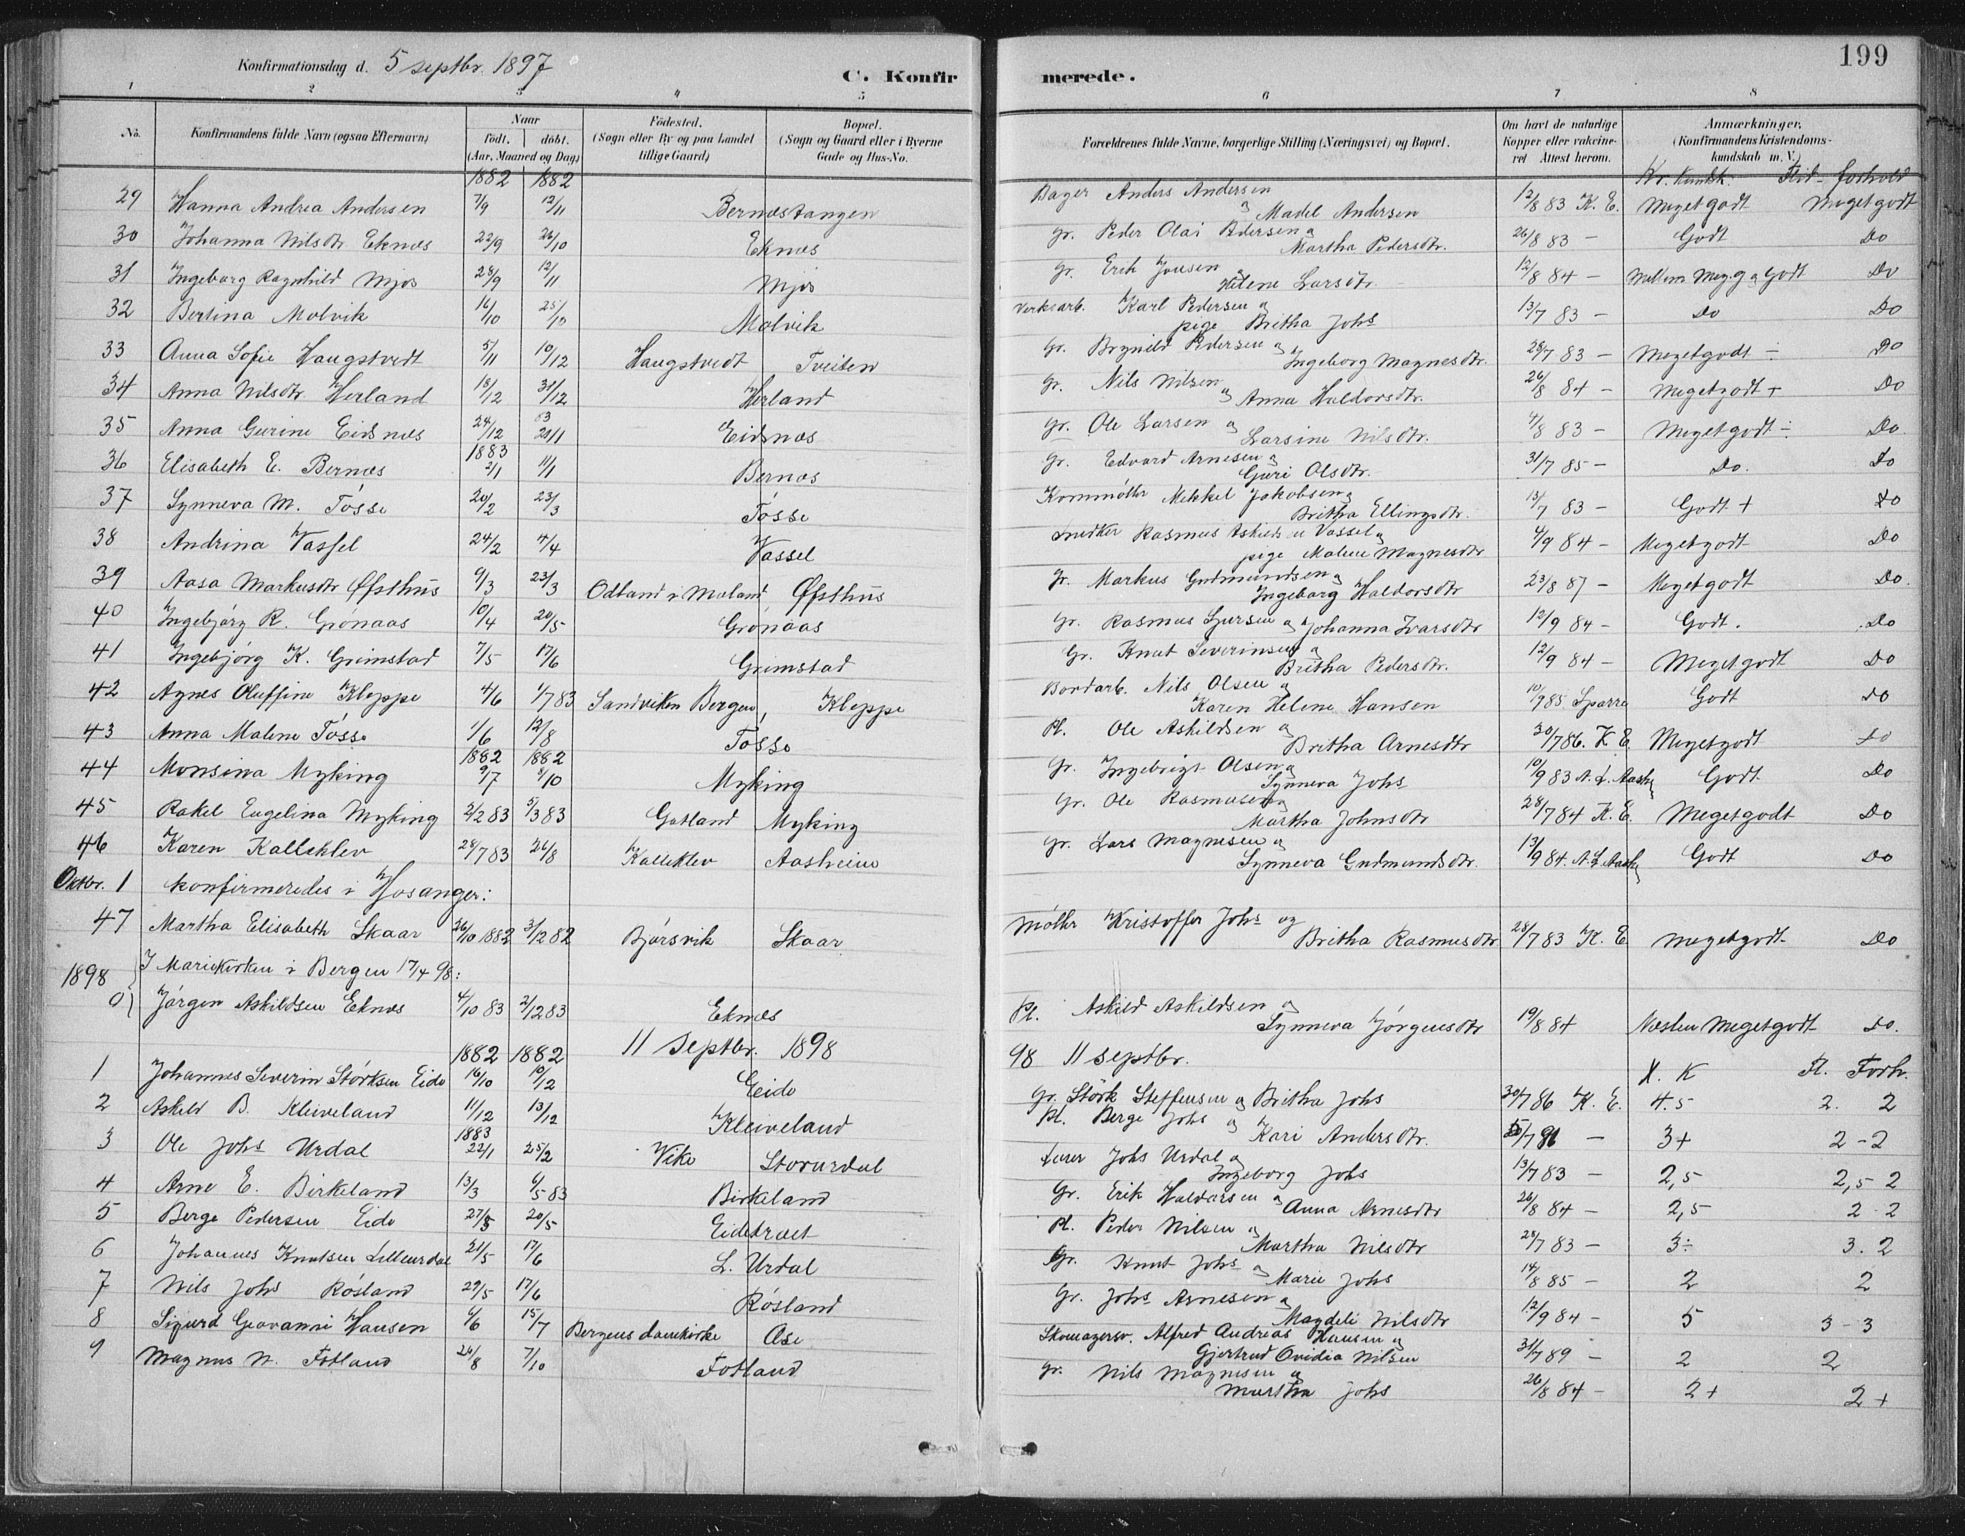 Konfirmationsdag d. 5 septbr. 1897
C. Konfirmerede.
199
1 2 3 4 5 6 7 8
No. Konfirmandens fulde Navn (ogsaa Efternavn) Naar født, døbt. (Aar, Maaned og Dag) Fødested. (Sogn eller By og paa Landet tillige Gaard) Bopæl. (Sogn og Gaard eller i Byerne Gade og Hus-No. Forældrenes fulde Navne, borgerlige Stilling (Næringsvei) og Bopæl. Om havt de naturlige Kopper eller vaccineret. Attest herom. Anmærkninger, (Konfirmandens Kristendomskundskab m. V.)
1882 1882 Kr. kundsk. Flid - forhold
29 Hanna Andrea Andersen 7/9 12/11 Bernæstangen Bager Anders Andersen og Madel Andersen 12/8 83 K. E. Megetgodt Megetgodt
30 Johanna Nilsdtr Eknæs 22/9 26/10 Eknæs Gr. Peder Olai Pedersen og Martha Pedersdtr. 26/8 83 - Godt Do
31 Ingeborg Ragnhild Mjøs 28/9 12/11 Mjøs Gr. Erik Jonsen og Helene Larsdtr 12/8 84 - Mellem Meg.g og Godt Do
32 Bertina Molvik 16/10 25/10 Molvik Verksarb. Karl Pedersen og pige Britha Johs 13/7 83 - Do Do
33 Anna Sofie Haugstvedt 5/11 10/12 Haugstvedt Tveiten Gr. Brynild Pedersen og Ingeborg Magnesdtr. 28/7 83 - Megetgodt ÷ Do
34 Anna Nilsdtr. Herland 18/12 31/12 Herland Gr. Nils Nilsen og Anna Haldorsdtr. 26/8 84 - Megetgodt + Do
35 Anna Gurine Eidsnæs 24/12 83 21/1 Eidsnæs Gr. Ole Larsen og Larsine Nilsdtr. 4/8 83 - Megetgodt ÷ Do.
1883
36 Elisabeth E. Bernæs 2/1 11/1 Bernæs Gr. Edvard Arnesen og Guri Olsdtr. 31/7 85 - Do. Do
37 Synneva M. Tösse 20/2 23/3 Tösse Kornmöller Mikkel Jakobsen og Britha Ellingsdtr. 13/7 83 - Godt + Do
38 Andrina Vassel 24/2 4/4 Vassel Snedker Rasmus Askilds. Vassel og pige Malene Magnesdtr 4/9 84 - Megetgodt Do
39 Aasa Markusdtr Øfsthus 9/3 23/3 Odland i Moland Øfsthus Gr. Markus Gudmundsen og Ingeborg Haldorsdtr 23/8 87 - Megetgodt Do.
40 Ingebjörg R. Grönaas 10/4 20/5 Grönaas Gr. Rasmus Sjursen og Johanna Ivarsdtr 12/9 84 - Godt. Do
41 Ingebjörg K. Grimstad 7/5 17/6 Grimstad Gr. Knut Severinsen og Britha Pedersdtr. 12/9 84 - Megetgodt Do
42 Agnes Oluffine Kleppe 4/6 1/7 83 Sandviken Bergen, Kleppe Bordarb. Nils Olsen og Karen Helene Hansen 10/9 85 Sparre Godt Do
43 Anna Malene Tösse 1/6 12/8 Tösse Pl. Ole Askildsen og Britha Arnesdtr 30/7 86. K E. Megetgodt Do
1882 1882
44 Monsina Myking 9/7 8/10 Myking Gr. Ingebrigt Olsen og Synneva Johs 10/9 83 N. L. Aash Godt Do
45 Rakel Engelina Myking 2/2 83 5/3 83 Gatland Myking Gr. Ole Rasmusen og Martha Johnsdtr 28/7 84 K. E. Megetgodt Do
46 Karen Kalleklev 28/7 83 26/8 Kalleklev Aasheim Gr. Lars Magnesen og Synneva Gudmundsdtr. 13/9 84. N. L. Aash Godt Do
Oktbr. 1 konfirmeredes i Hosanger:
47 Martha Elisabeth Skaar 26/10 1882 3/12 82 Bjørsvik Skaar Möller Kristoffer Johs og Britha Rasmusdtr 28/7 83 K. E. Megetgodt Do
1898 I Mariekirken i Bergen 17/4 98:
0 Jörgen Askildsen Eknæs 4/10 83 2/12 83 Eknæs Pl. Askild Askildsen og Synneva Jörgensdtr 19/8 84 Næsten Megetgodt Do.
1882 1882 11 septbr. 1898 98 11 septbr. K. K Fl. Forh.
1 Johannes Severin Störksen Eide 16/10 10/12 Eide Gr. Störk Steffensen og Britha Johs 30/7 86 K. E. 4.5 2. 2
2 Askild B. Kleiveland 11/12 13/12 Kleiveland Pl. Berge Johs og Kari Andersdtr. /7 91 - 3+ 2-2
1883
3 Ole Johs Urdal 22/1 25/2 Vike Storurdal Lærer Johs Urdal og Ingeborg Johs 13/7 83 - 2,5 2,5 2
4 Arne E. Birkeland 13/3 6/5 83 Birkeland Gr. Erik Haldorsen og Anna Arnesdtr 26/8 84 - 2,5 2 2
5 Berge Pedersen Eide 27/3 20/5 Eidetræet Pl. Peder Nilsen og Martha Nilsdtr 28/7 83 - 3÷ 3. 2
6 Johannes Knutsen Lilleurdal 21/5 17/6 L. Urdal Gr. Knut Johs og Marie Johs 14/8 85 - 2 2
7 Nils Johs Rösland 29/5 17/6 Rösland Gr. Johs Arnesen og Magdeli Nilsdtr 12/9 84 - 5 3-3
8 Sigurd Geovanni Hansen 6/6 15/7 Bergens Domkirke Ose Skomagersv. Alfred Andreas Hansen og Gjertrud Ovidia Nilsen 31/7 89 - 2 2
9 Magnus N. Fotland 26/8 7/10 Fotland Gr. Nils Magnesen og Martha Johs 26/8 84 - 2+ 2+